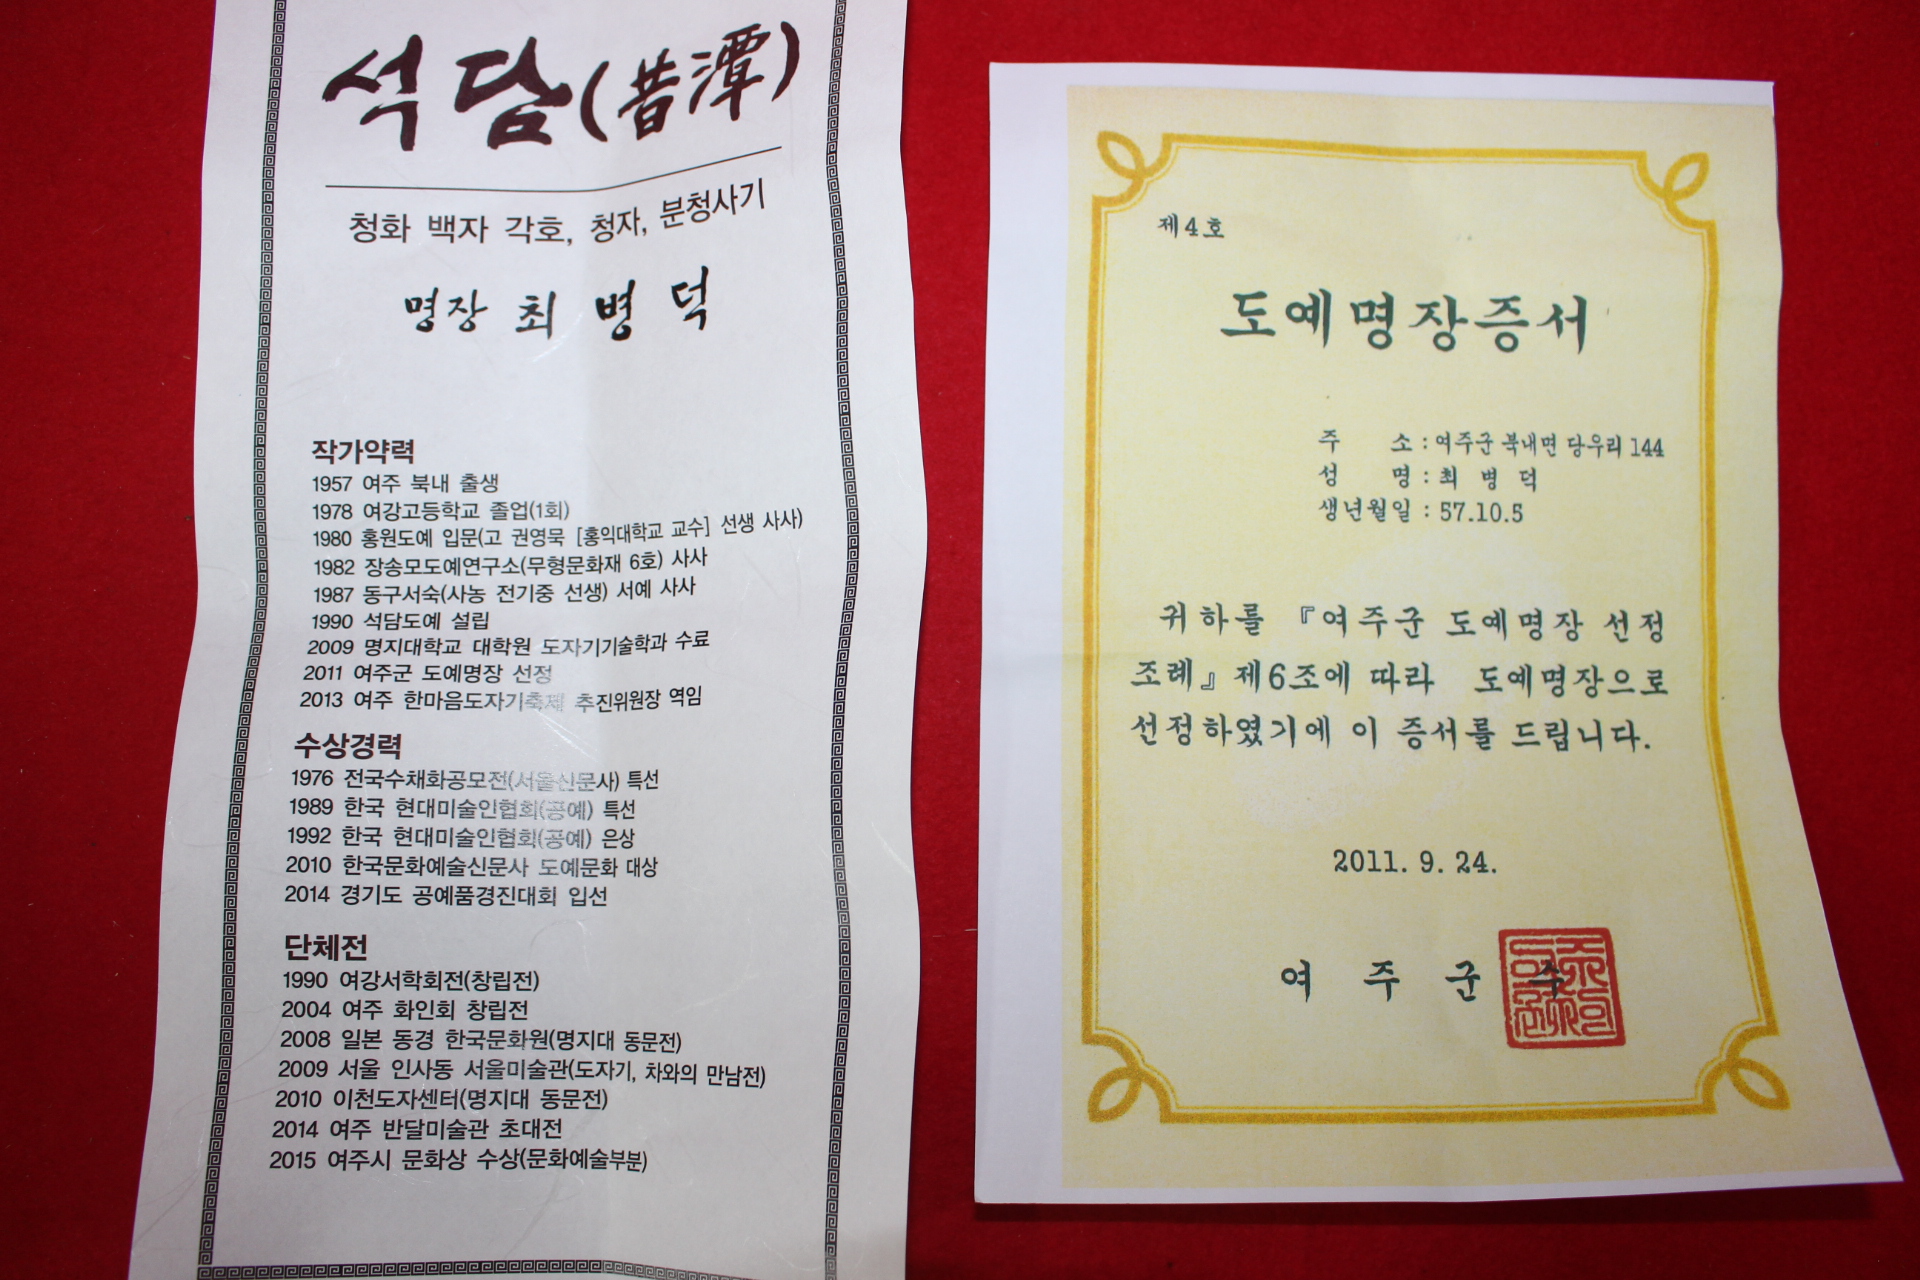 석담(昔潭)
청화 백자 각호, 청자, 분청사기
명장 최병덕
작가약력
1957 여주 북내 출생
1978 여강고등학교 졸업(1회)
1980 홍원도예 입문(고 권영묵 [홍익대학교 교수] 선생 사사)
1982 장송모도예연구소(무형문화재 6호) 사사
1987 동구서숙(사농 전기중 선생) 서예 사사
1990 석담도예 설립
2009 명지대학교 대학원 도자기기술학과 수료
2011 여주군 도예명장 선정
2013 여주 한마음도자기축제 추진위원장 역임
수상경력
1976 전국수채화공모전(서울신문사) 특선
1989 한국 현대미술인협회(공예) 특선
1992 한국 현대미술인협회(공예) 은상
2010 한국문화예술신문사 도예문화 대상
2014 경기도 공예품경진대회 입선
단체전
1990 여강서학회전(창립전)
2004 여주 화인회 창립전
2008 일본 동경 한국문화원(명지대 동문전)
2009 서울 인사동 서울미술관(도자기, 차와의 만남전)
2010 이천도자센터(명지대 동문전)
2014 여주 반달미술관 초대전
2015 여주시 문화상 수상(문화예술부분)
제4호
도예명장증서
주 소 : 여주군 북내면 당우리 144
성 명 : 최 병 덕
생년월일 : 57.10.5
귀하를 『여주군 도예명장 선정
조례』제6조에 따라 도예명장으로
선정하였기에 이 증서를 드립니다.
2011. 9. 24.
여 주 군 수